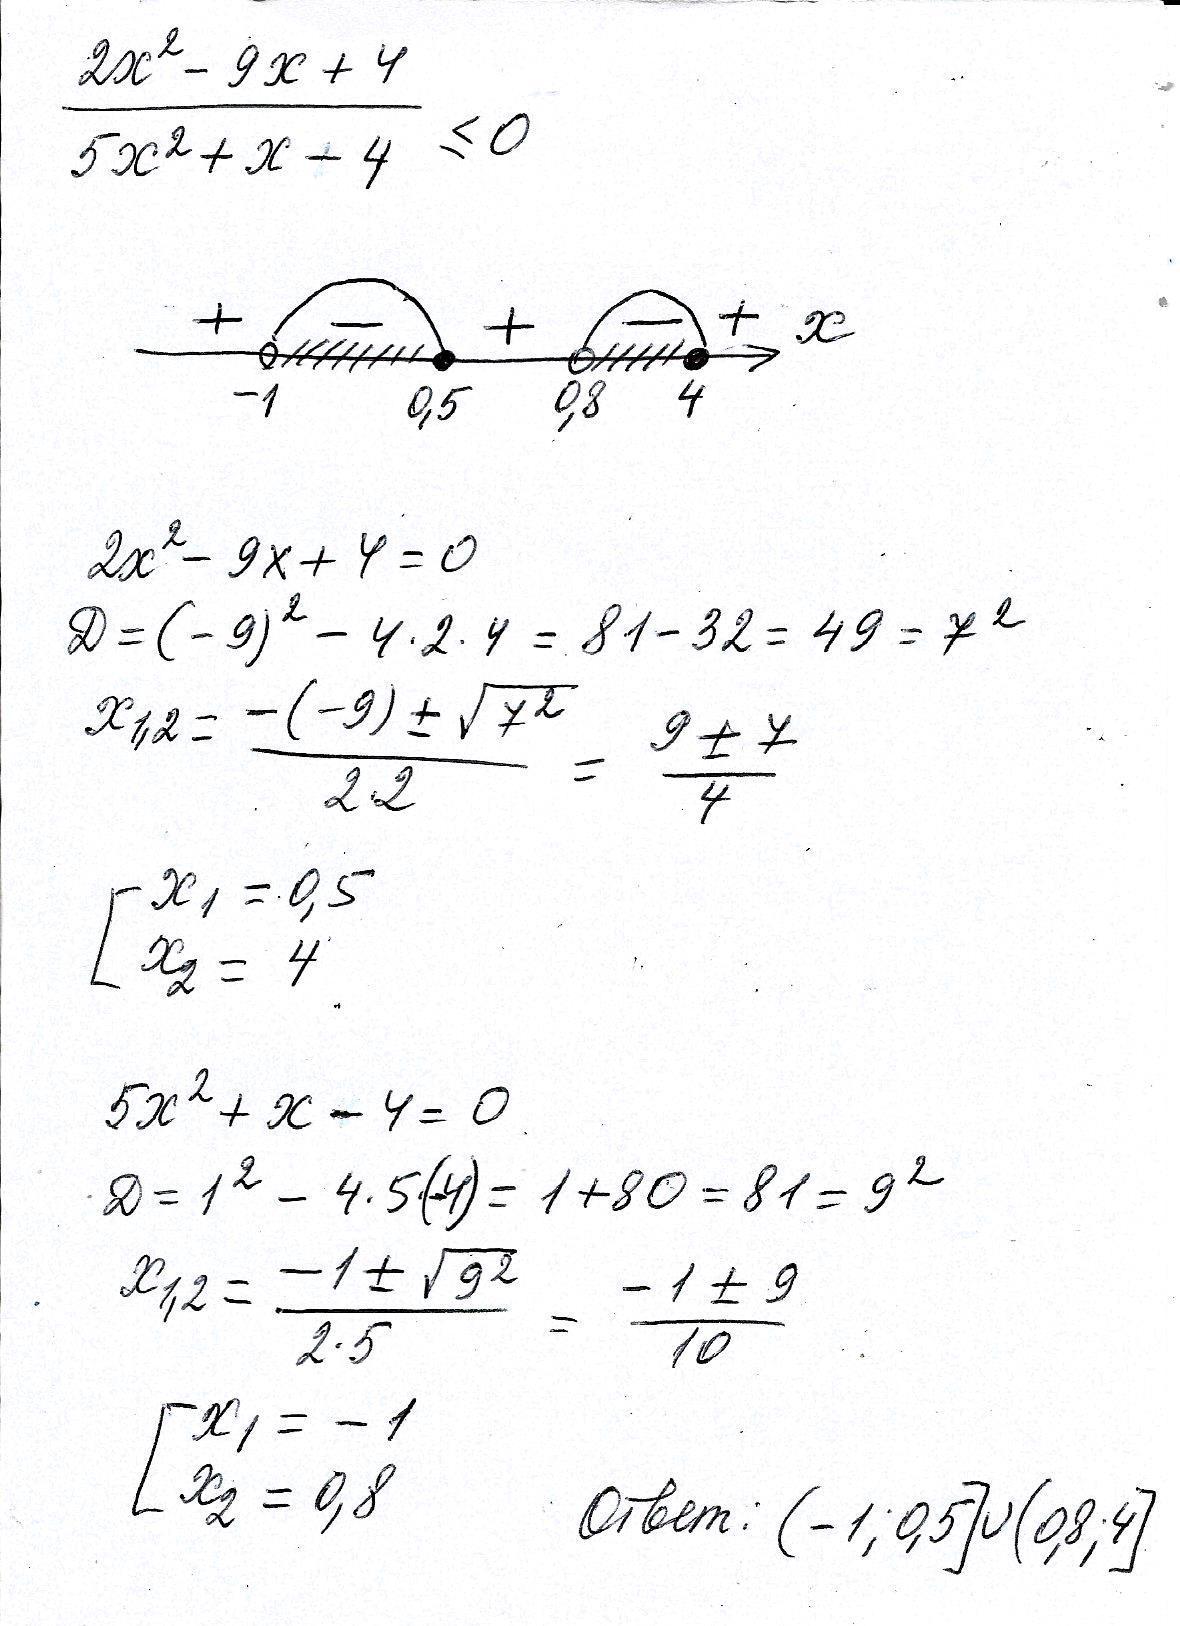 2x² - 9x + 4
5x² + x - 4 ≤ 0
+ - + - + x
-1 0,5 0,8 4
2x² - 9x + 4 = 0
D = (-9)² - 4·2·4 = 81 - 32 = 49 = 7²
x1,2 = -(-9) ± √7² / 2·2 = 9 ± 7 / 4
[ x1 = 0,5
x2 = 4
5x² + x - 4 = 0
D = 1² - 4·5(-4) = 1 + 80 = 81 = 9²
x1,2 = -1 ± √9² / 2·5 = -1 ± 9 / 10
[ x1 = -1
x2 = 0,8
Ответ: (-1; 0,5]∪(0,8; 4]